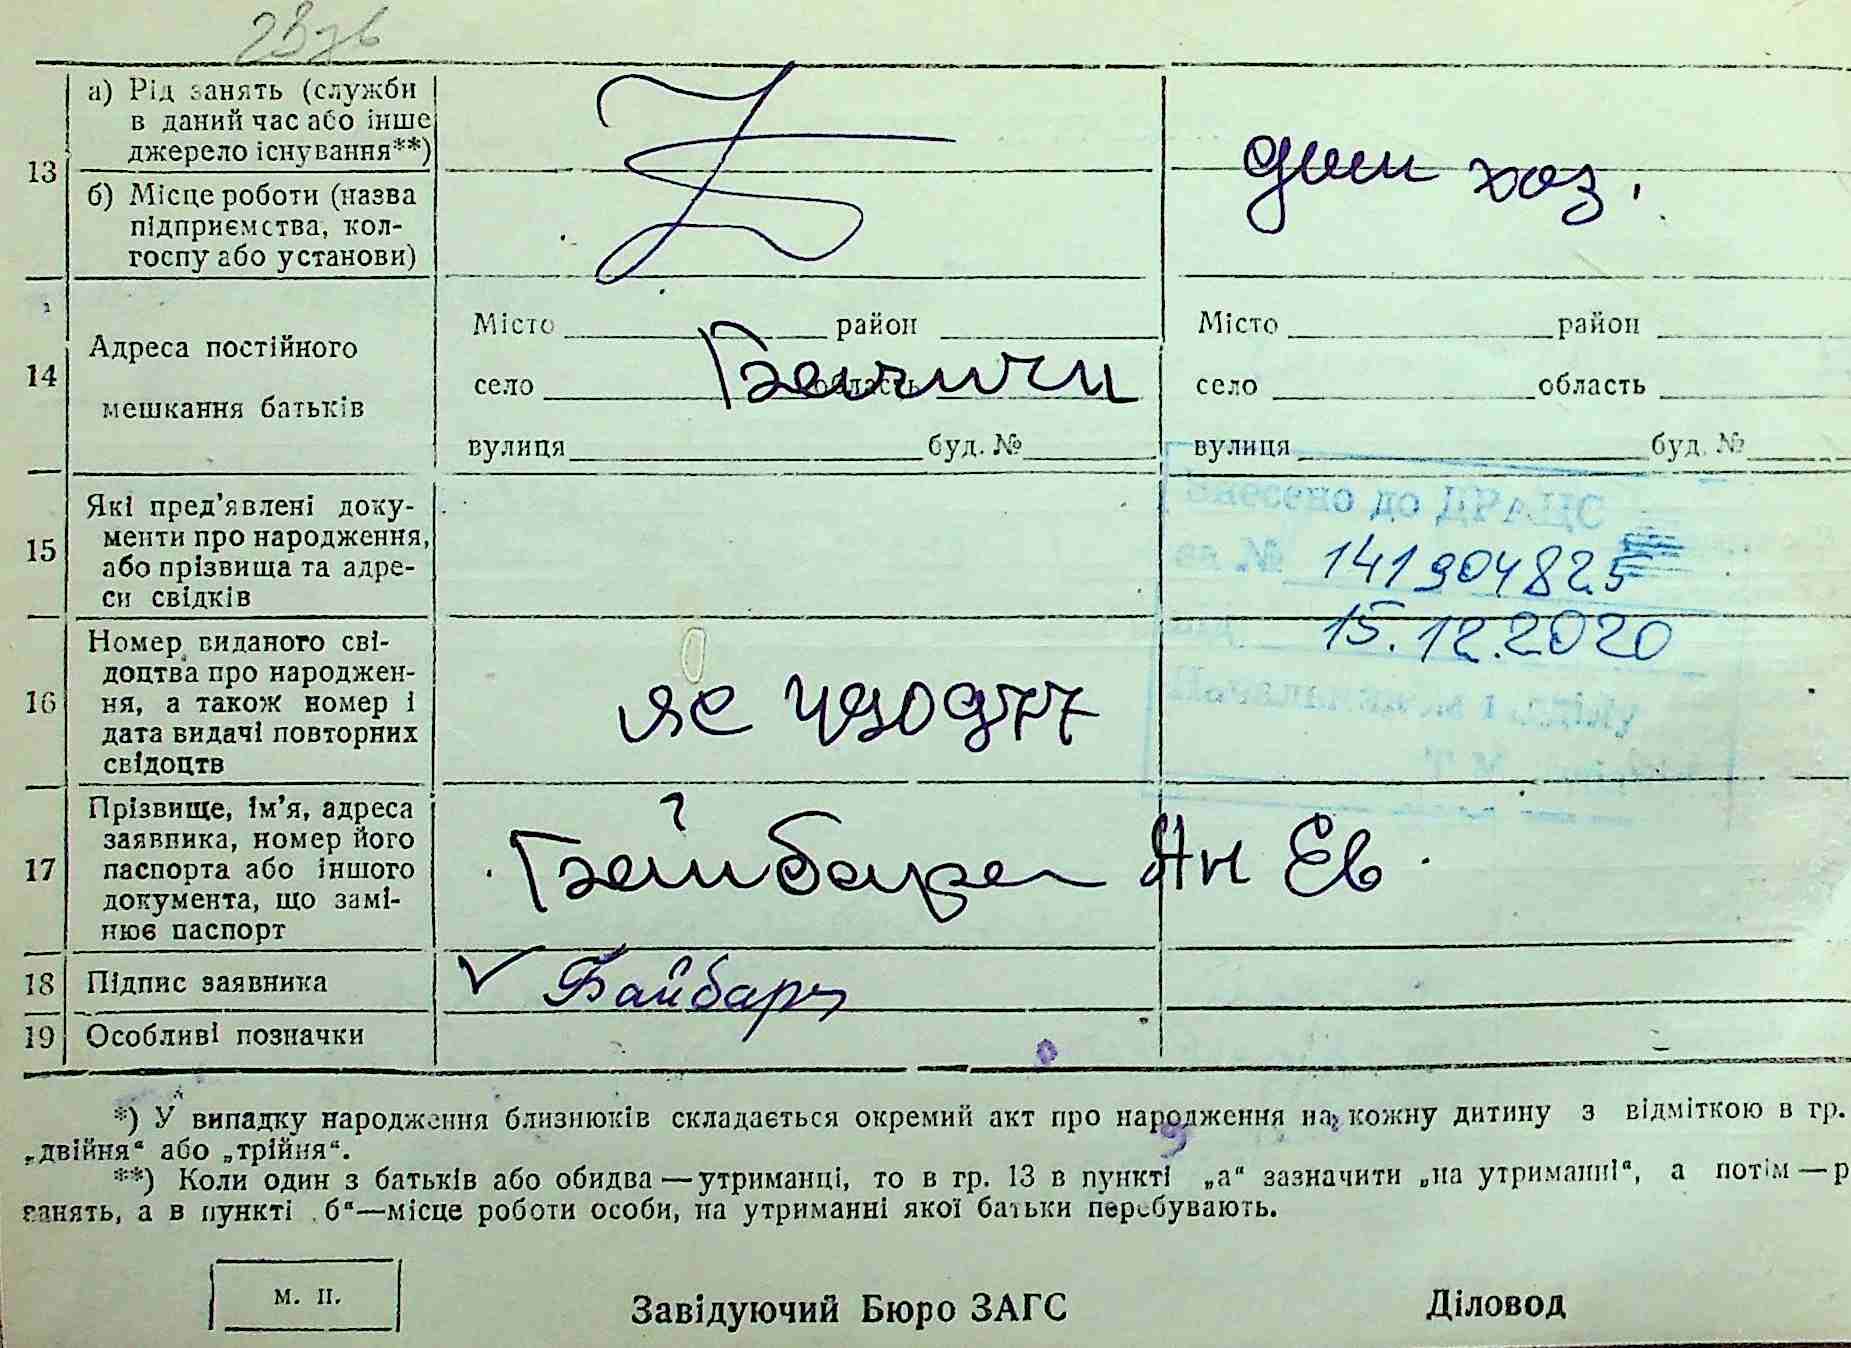 2376
13
а) Рід занять (служби
в даний час або інше
джерело існування**)
дом хоз.
б) Місце роботи (назва
підприємства, кол-
госпу або установи)
14
Адреса постійного
мешкання батьків
Місто район
село область
вулиця буд. №
Місто район
село область
вулиця буд. №
15
Які пред'явлені доку-
менти про народження,
або прізвища та адре-
си свідків
Внесено до ДРАЦС
за № 141904825
від 15.12.2020
Начальник відділу
16
Номер виданого сві-
доцтва про народжен-
ня, а також номер і
дата видачі повторних
свідоцтв
17
Прізвище, ім'я, адреса
заявника, номер його
паспорта або іншого
документа, що замі-
нює паспорт
Ан Ев
18
Підпис заявника
Байбарз
19
Особливі позначки
*) У випадку народження близнюків складається окремий акт про народження на кожну дитину з відміткою в гр.
„двійня“ або „трійня“.
**) Коли один з батьків або обидва — утриманці, то в гр. 13 в пункті „а“ зазначити „на утриманні“, а потім — р
занять, а в пункті „б“—місце роботи особи, на утриманні якої батьки перебувають.
м. п.
Завідуючий Бюро ЗАГС
Діловод